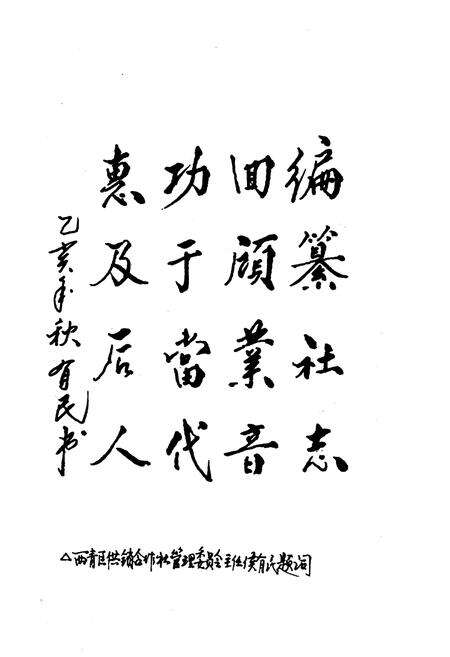 编纂社志
回顾業音
功于當代
惠及后人
乙亥年秋 有民书
△西青区供销合作社管理委员会主任侯有民题词